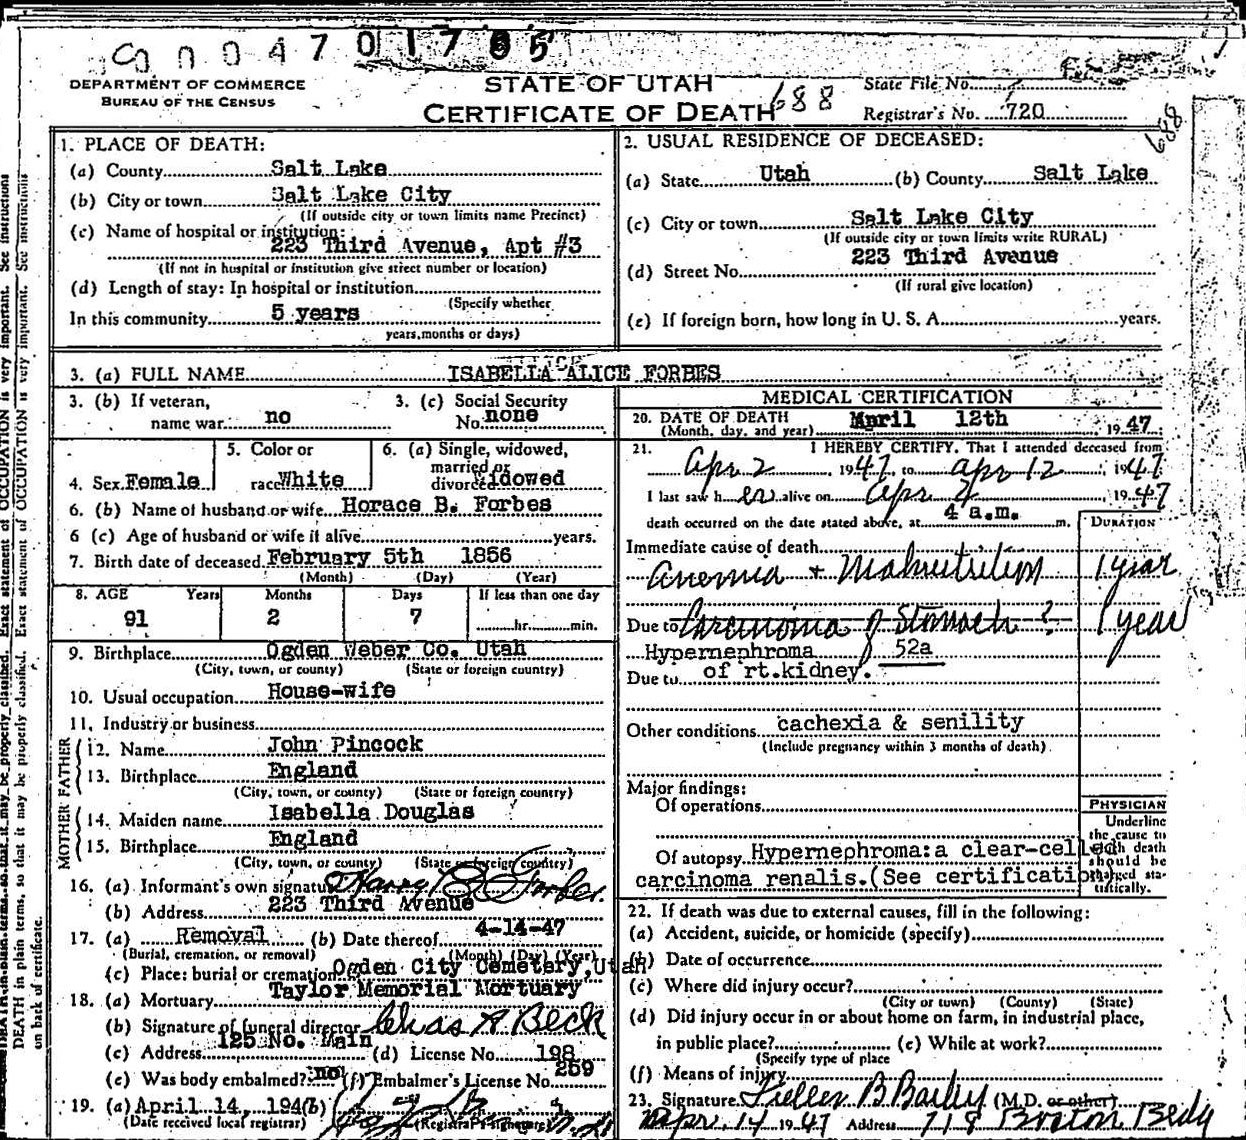 0004701705
DEPARTMENT OF COMMERCE
BUREAU OF THE CENSUS
STATE OF UTAH
CERTIFICATE OF DEATH
688
State File No.
Registrar's No. 720
688
1. PLACE OF DEATH:
(a) County Salt Lake
(b) City or town Salt Lake City
(If outside city or town limits name Precinct)
(c) Name of hospital or institution:
223 Third Avenue, Apt #3
(If not in hospital or institution give street number or location)
(d) Length of stay: In hospital or institution
(Specify whether
In this community 5 years
years, months or days)
2. USUAL RESIDENCE OF DECEASED:
(a) State Utah (b) County Salt Lake
(c) City or town Salt Lake City
(If outside city or town limits write RURAL)
(d) Street No. 223 Third Avenue
(If rural give location)
(e) If foreign born, how long in U. S. A. years.
3. (a) FULL NAME ISABELLA ALICE FORBES
3. (b) If veteran,
name war no
3. (c) Social Security
No. none
4. Sex Female
5. Color or
race White
6. (a) Single, widowed,
married or
divorced widowed
6. (b) Name of husband or wife Horace B. Forbes
6 (c) Age of husband or wife if alive years.
7. Birth date of deceased February 5th 1856
(Month) (Day) (Year)
8. AGE Years Months Days If less than one day
91 2 7 hr. min.
9. Birthplace Ogden Weber Co. Utah
(City, town, or county) (State or foreign country)
10. Usual occupation House-wife
11. Industry or business
FATHER
12. Name John Pincock
13. Birthplace England
(City, town, or county) (State or foreign country)
MOTHER
14. Maiden name Isabella Douglas
15. Birthplace England
(City, town, or county) (State or foreign country)
16. (a) Informant's own signature Harry B. Forbes.
(b) Address 223 Third Avenue
17. (a) Removal (b) Date thereof 4-14-47
(Burial, cremation, or removal) (Month) (Day) (Year)
(c) Place: burial or cremation Ogden City Cemetery, Utah
18. (a) Mortuary Taylor Memorial Mortuary
(b) Signature of funeral director Chas A Beck
(c) Address 125 No. Main (d) License No. 198
(e) Was body embalmed? no (f) Embalmer's License No. 259
19. (a) April 14, 1947 (b)
(Date received local registrar) (Registrar's signature)
MEDICAL CERTIFICATION
20. DATE OF DEATH April 12th 1947
(Month, day, and year)
21. I HEREBY CERTIFY, That I attended deceased from
Apr 2 1947, to Apr 12, 1947
I last saw her alive on Apr 2, 1947
death occurred on the date stated above, at 4 a.m. m.
DURATION
Immediate cause of death
Anemia + Malnutrition 1 year
Due to Carcinoma of Stomach? 1 year
Hypernephroma 52a
Due to of rt.kidney.
Other conditions cachexia & senility
(Include pregnancy within 3 months of death)
Major findings:
Of operations
Of autopsy Hypernephroma: a clear-celled
carcinoma renalis. (See certification)
PHYSICIAN
Underline
the cause to
which death
should be
charged sta-
tistically.
22. If death was due to external causes, fill in the following:
(a) Accident, suicide, or homicide (specify)
(b) Date of occurrence
(c) Where did injury occur?
(City or town) (County) (State)
(d) Did injury occur in or about home on farm, in industrial place,
in public place? (e) While at work?
(Specify type of place
(f) Means of injury
23. Signature Fuller B Bailey (M.D. or other)
Apr. 14 1947 Address 718 Boston Bldg
DEATH in plain terms, so that it may be properly classified. Exact statement of OCCUPATION is very important. See instructions
on back of certificate.